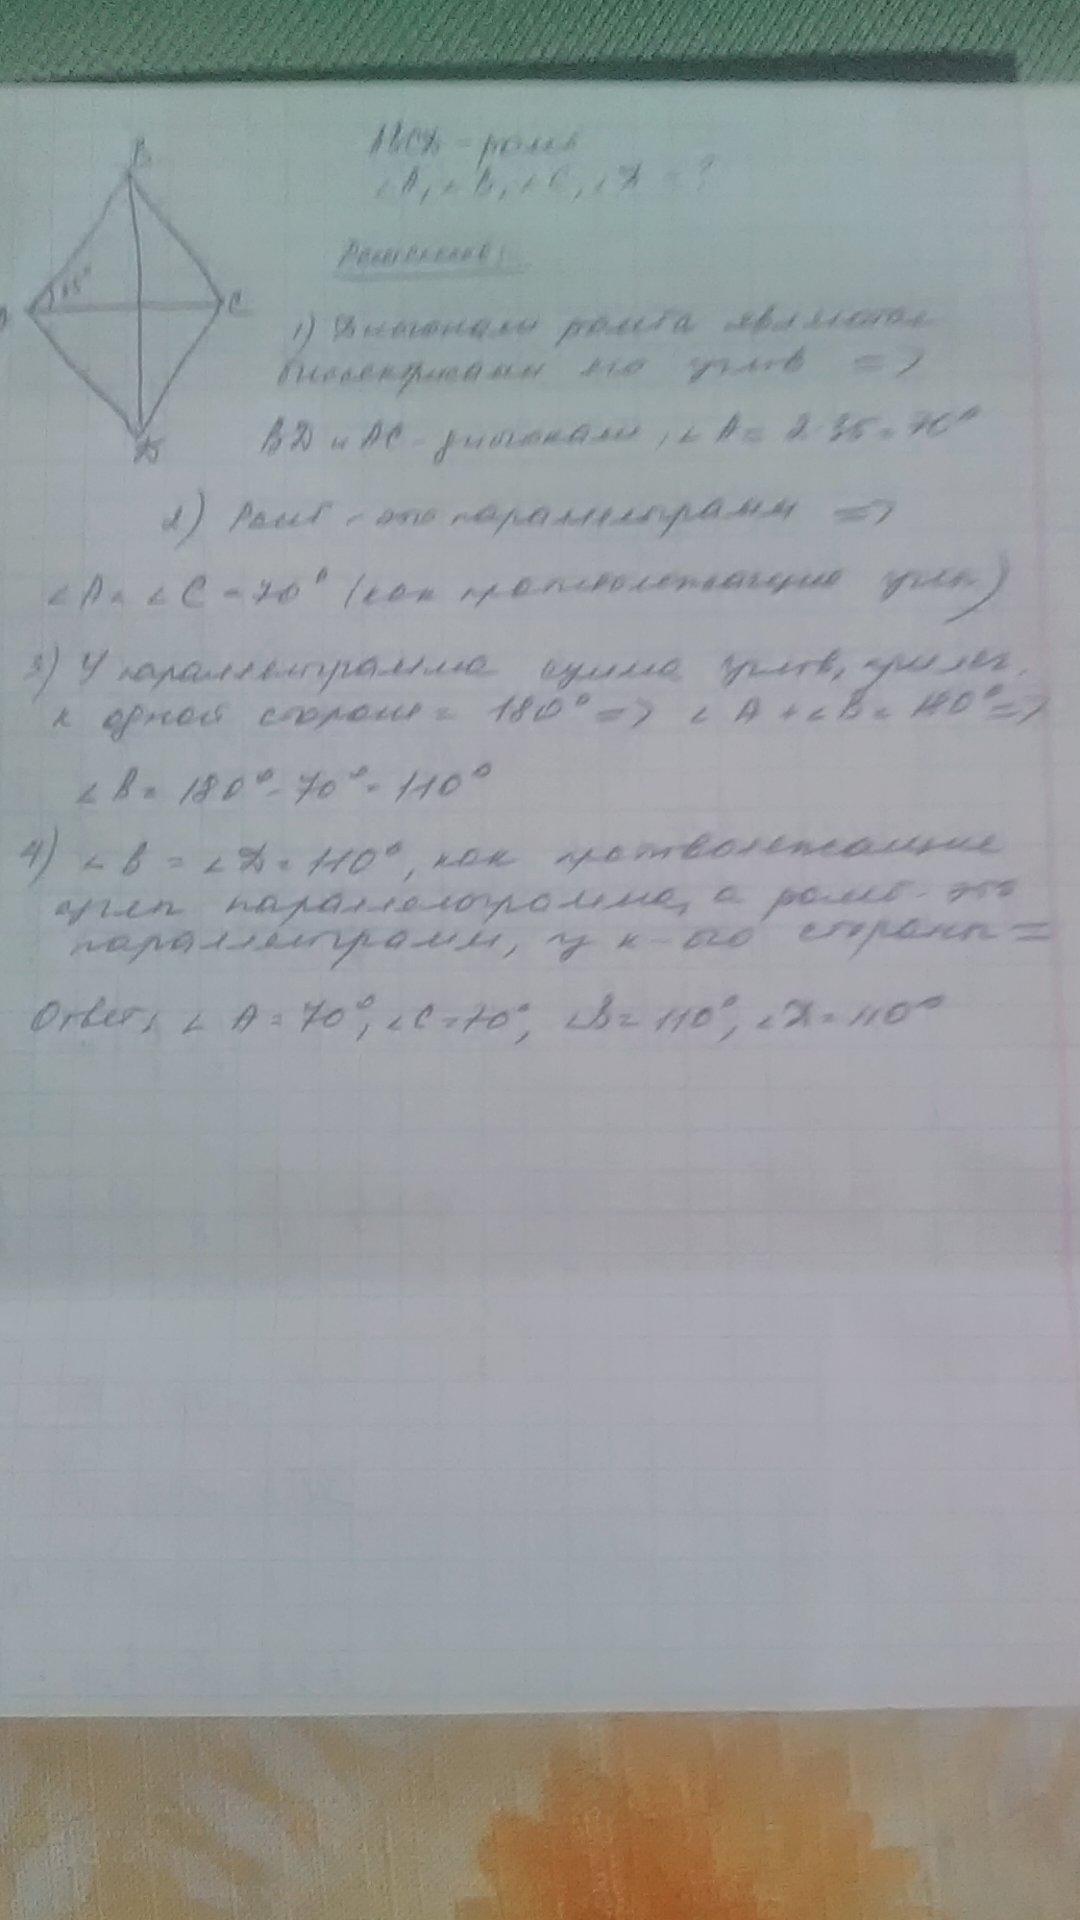 B
35°
C
D
ABCD - ромб
∠A, ∠B, ∠C, ∠D = ?
Решение:
1) Диагонали ромба являются
биссектрисами его углов =>
BD и AC - диагонали, ∠A = 2·35 = 70°
2) Ромб - это параллелограмм =>
∠A = ∠C = 70° (как противолежащие углы)
3) У параллелограмма сумма углов, прилеж.
к одной стороне = 180° => ∠A + ∠B = 180° =>
∠B = 180° - 70° = 110°
4) ∠B = ∠D = 110°, как противолежащие
углы параллелограмма, а ромб - это
параллелограмм, у к-ого стороны =
Ответ: ∠A = 70°, ∠C = 70°, ∠B = 110°, ∠D = 110°